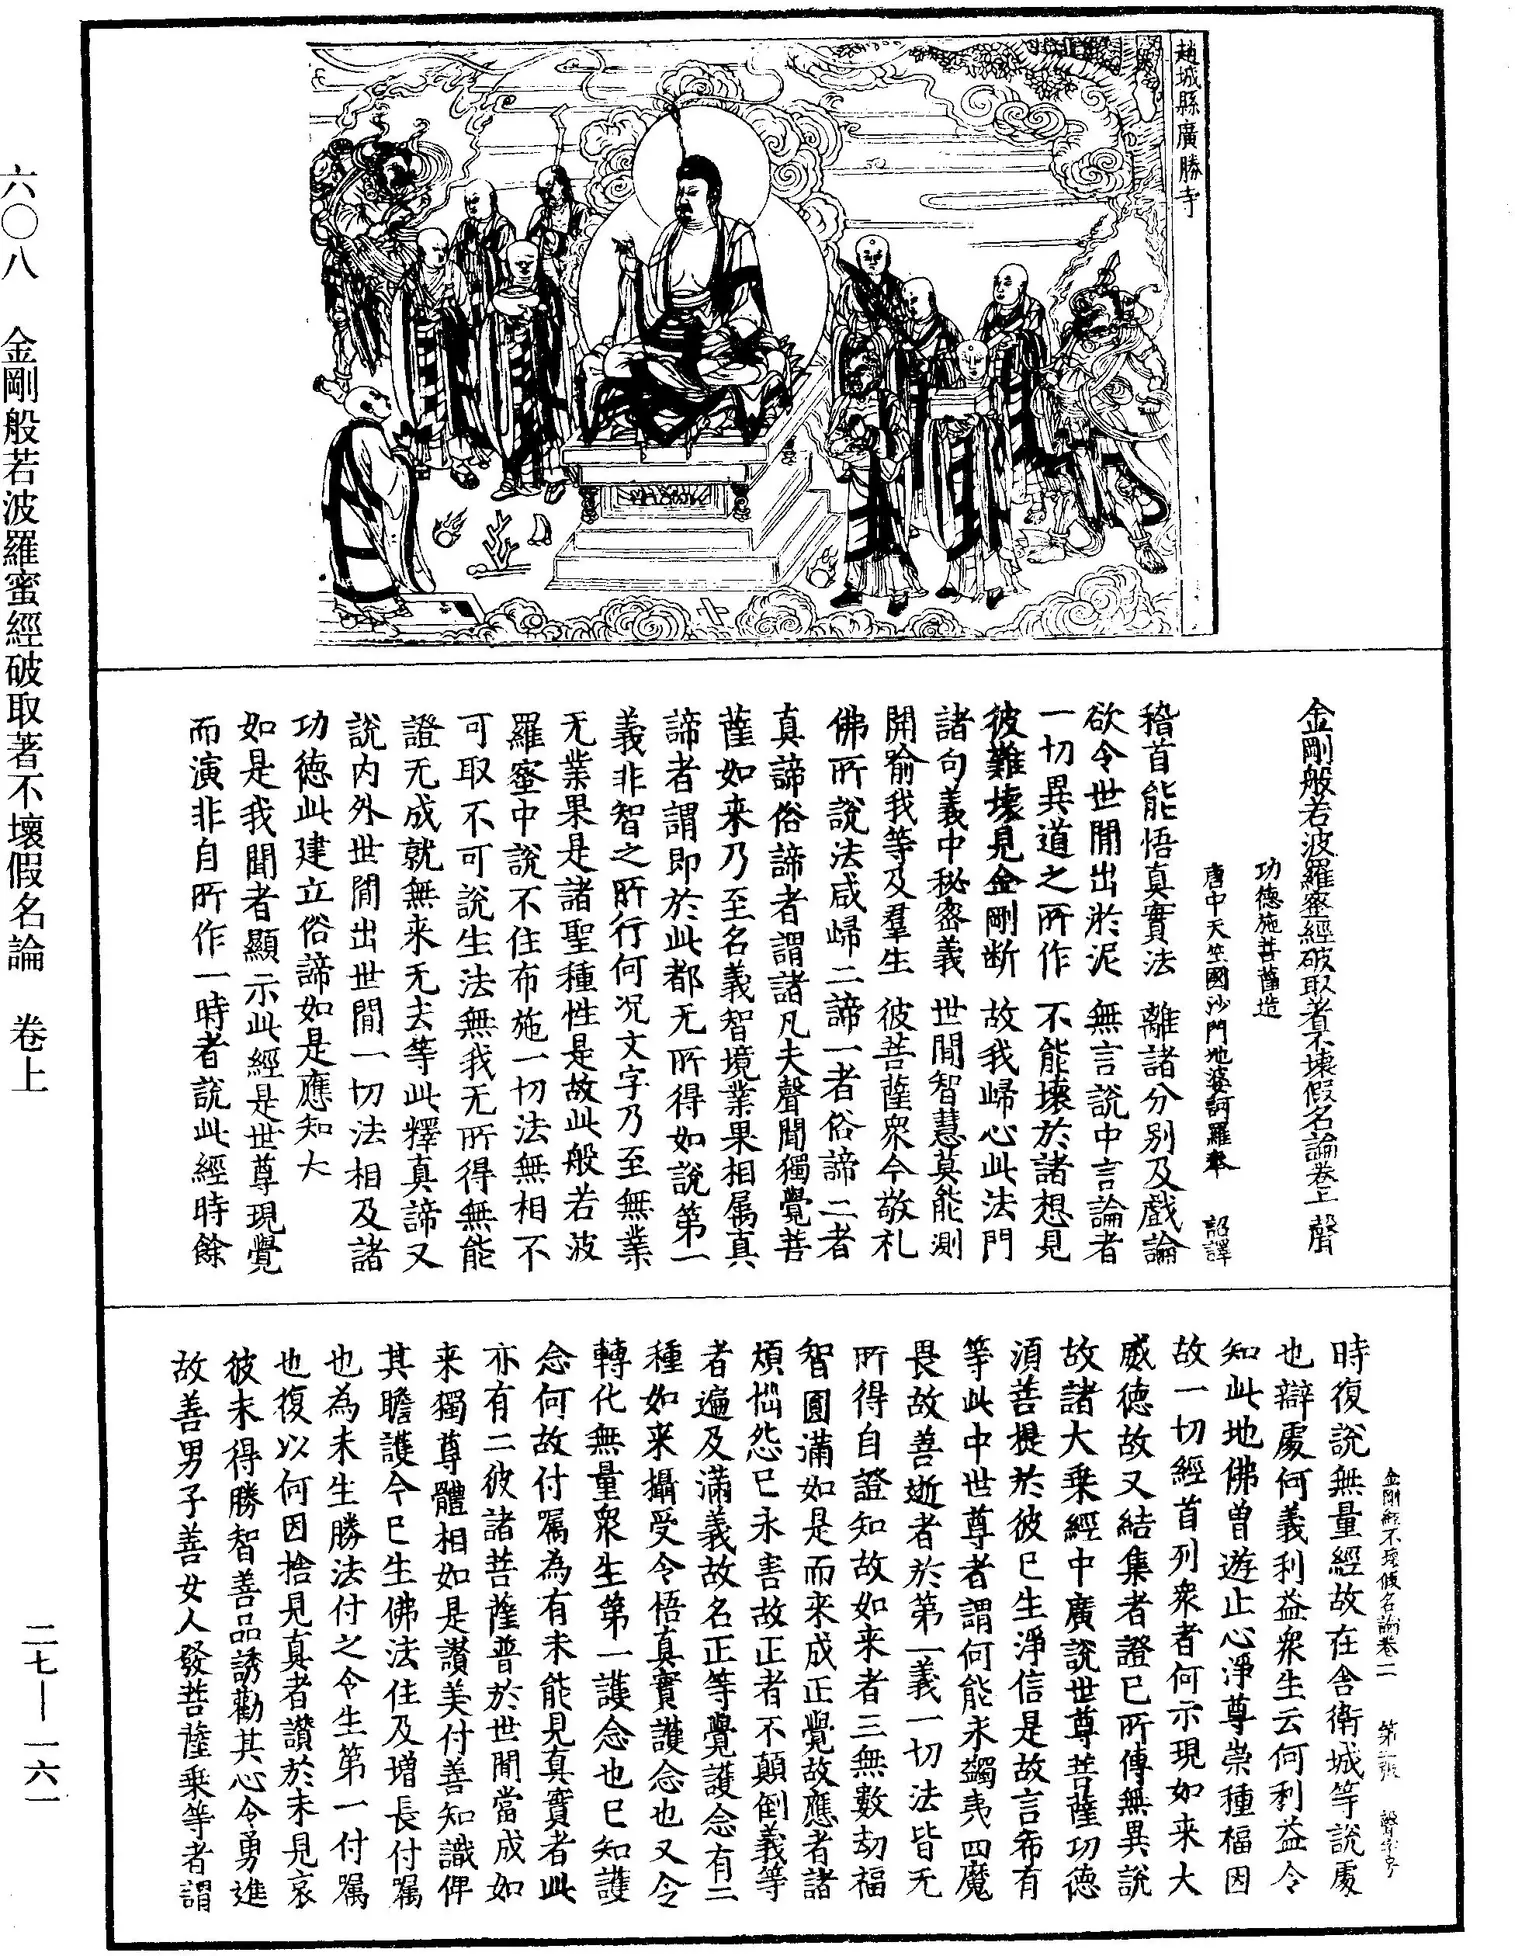 六〇八　金剛般若波羅蜜經破取著不壞假名論　卷上
二七—一六一
趙城縣廣勝寺
金剛般若波羅蜜經破取著不壞假名論卷上　聲
功德施菩薩造
唐中天竺國沙門地婆訶羅奉　詔譯
稽首能悟真實法　離諸分别及戲論
欲令世間出於泥　無言說中言論者
一切異道之所作　不能壞於諸想見
彼難壞見金剛断　故我歸心此法門
諸句義中秘密義　世間智慧莫能測
開喻我等及羣生　彼菩薩衆今敬礼
佛所說法咸歸二諦一者俗諦二者
真諦俗諦者謂諸凡夫聲聞獨覺菩
薩如来乃至名義智境業果相属真
諦者謂即於此都无所得如說第一
義非智之所行何况文字乃至無業
无業果是諸聖種性是故此般若波
羅蜜中說不住布施一切法無相不
可取不可說生法無我无所得無能
證无成就無来无去等此釋真諦又
說内外世間出世間一切法相及諸
功德此建立俗諦如是應知大
如是我聞者顯示此經是世尊現覺
而演非自所作一時者說此經時餘
金剛經不壞假名論卷上　第二張　聲字号
時復說無量經故在舍衛城等說處
也辯處何義利益衆生云何利益令
知此地佛曾遊止心淨尊崇種福因
故一切經首列衆者何示現如来大
威德故又結集者證已所傳無異說
故諸大乗經中廣說世尊菩薩功德
湏菩提於彼已生淨信是故言希有
等此中世尊者謂何能永蠲夷四魔
畏故善逝者於第一義一切法皆无
所得自證知故如来者三無數劫福
智圓滿如是而来成正覺故應者諸
煩惱怨已永害故正者不顛倒義等
者遍及滿義故名正等覺護念有二
種如来攝受令悟真實護念也又令
轉化無量衆生第一護念也已知護
念何故付囑為有未能見真實者此
亦有二彼諸菩薩普於世間當成如
来獨尊體相如是讃美付善知識俾
其瞻護令已生佛法住及增長付囑
也為未生勝法付之令生第一付囑
也復以何因捨見真者讃於未見哀
彼未得勝智善品誘勸其心令勇進
故善男子善女人發菩薩乗等者謂